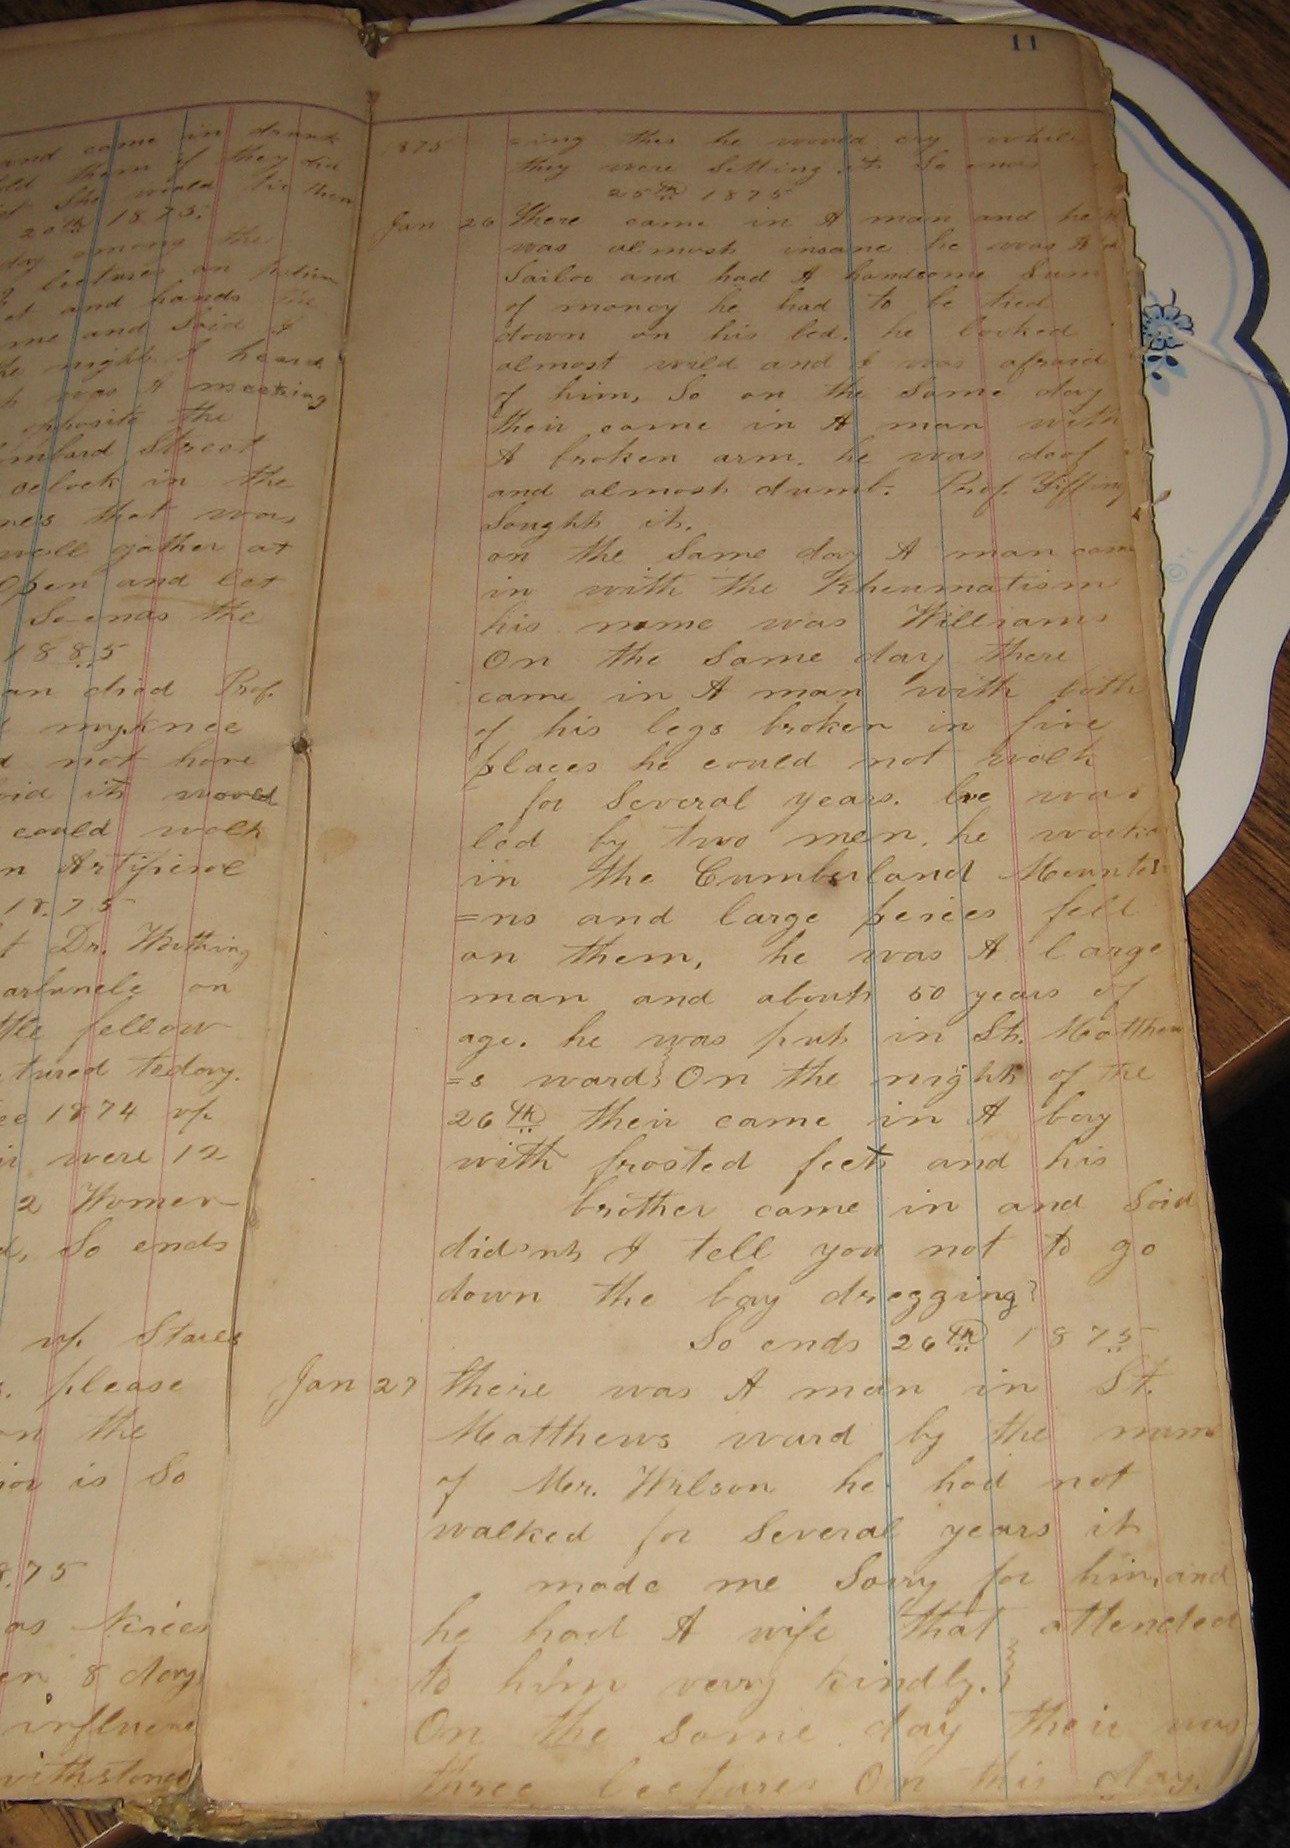 and came in drunk
told them if they did
she would tie them
20th 1875.
day among the
lectures on
et and hands
me and Said I
the night. I heard
was A meeting
opposite the
Street
oclock in the
that was
well gather at
Open and let
So ends the
1885
an died Prof.
my knee
not have
it would
could walk
n Artificial
1875
Dr. Withing
arbuncle on
little fellow
tured today.
1874 up
were 12
2 Women
So ends
up Stares
please
on the
is So
8.75
as
8 days
influene
11
1875 =ing this he would cry while
they were Setting it. So ends
25th 1875
Jan 26 There came in A man and he
was almost insane he was A
Sailor and had A handsome Sum
of money he had to be tied
down on his bed. he looked
almost wild and I was afraid
of him, So on the Same day
their came in A man with
A broken arm. he was deaf
and almost dumb. Prof.
Sought it.
on the Same day A man came
in with the Rheumatism
his name was Williams
On the Same day there
came in A man with both
of his legs broken in five
places he could not walk
for Several years. he was
led by two men. he works
in the Cumberland Mountai
=ns and large peices fell
on them, he was A large
man and about 50 years of
age. he was put in St. Matthew
=s ward On the night of the
26th their came in A boy
with frosted feet and his
brother came in and Said
didsnt I tell you not to go
down the bay dregging?
So ends 26th 1875
Jan 27 there was A man in St.
Matthews ward by the name
of Mr. Wilson he had not
walked for Several years it
made me Sorry for him, and
he had A wife that attended
to him very kindly.
On the Same day their was
three Lectures On this day.